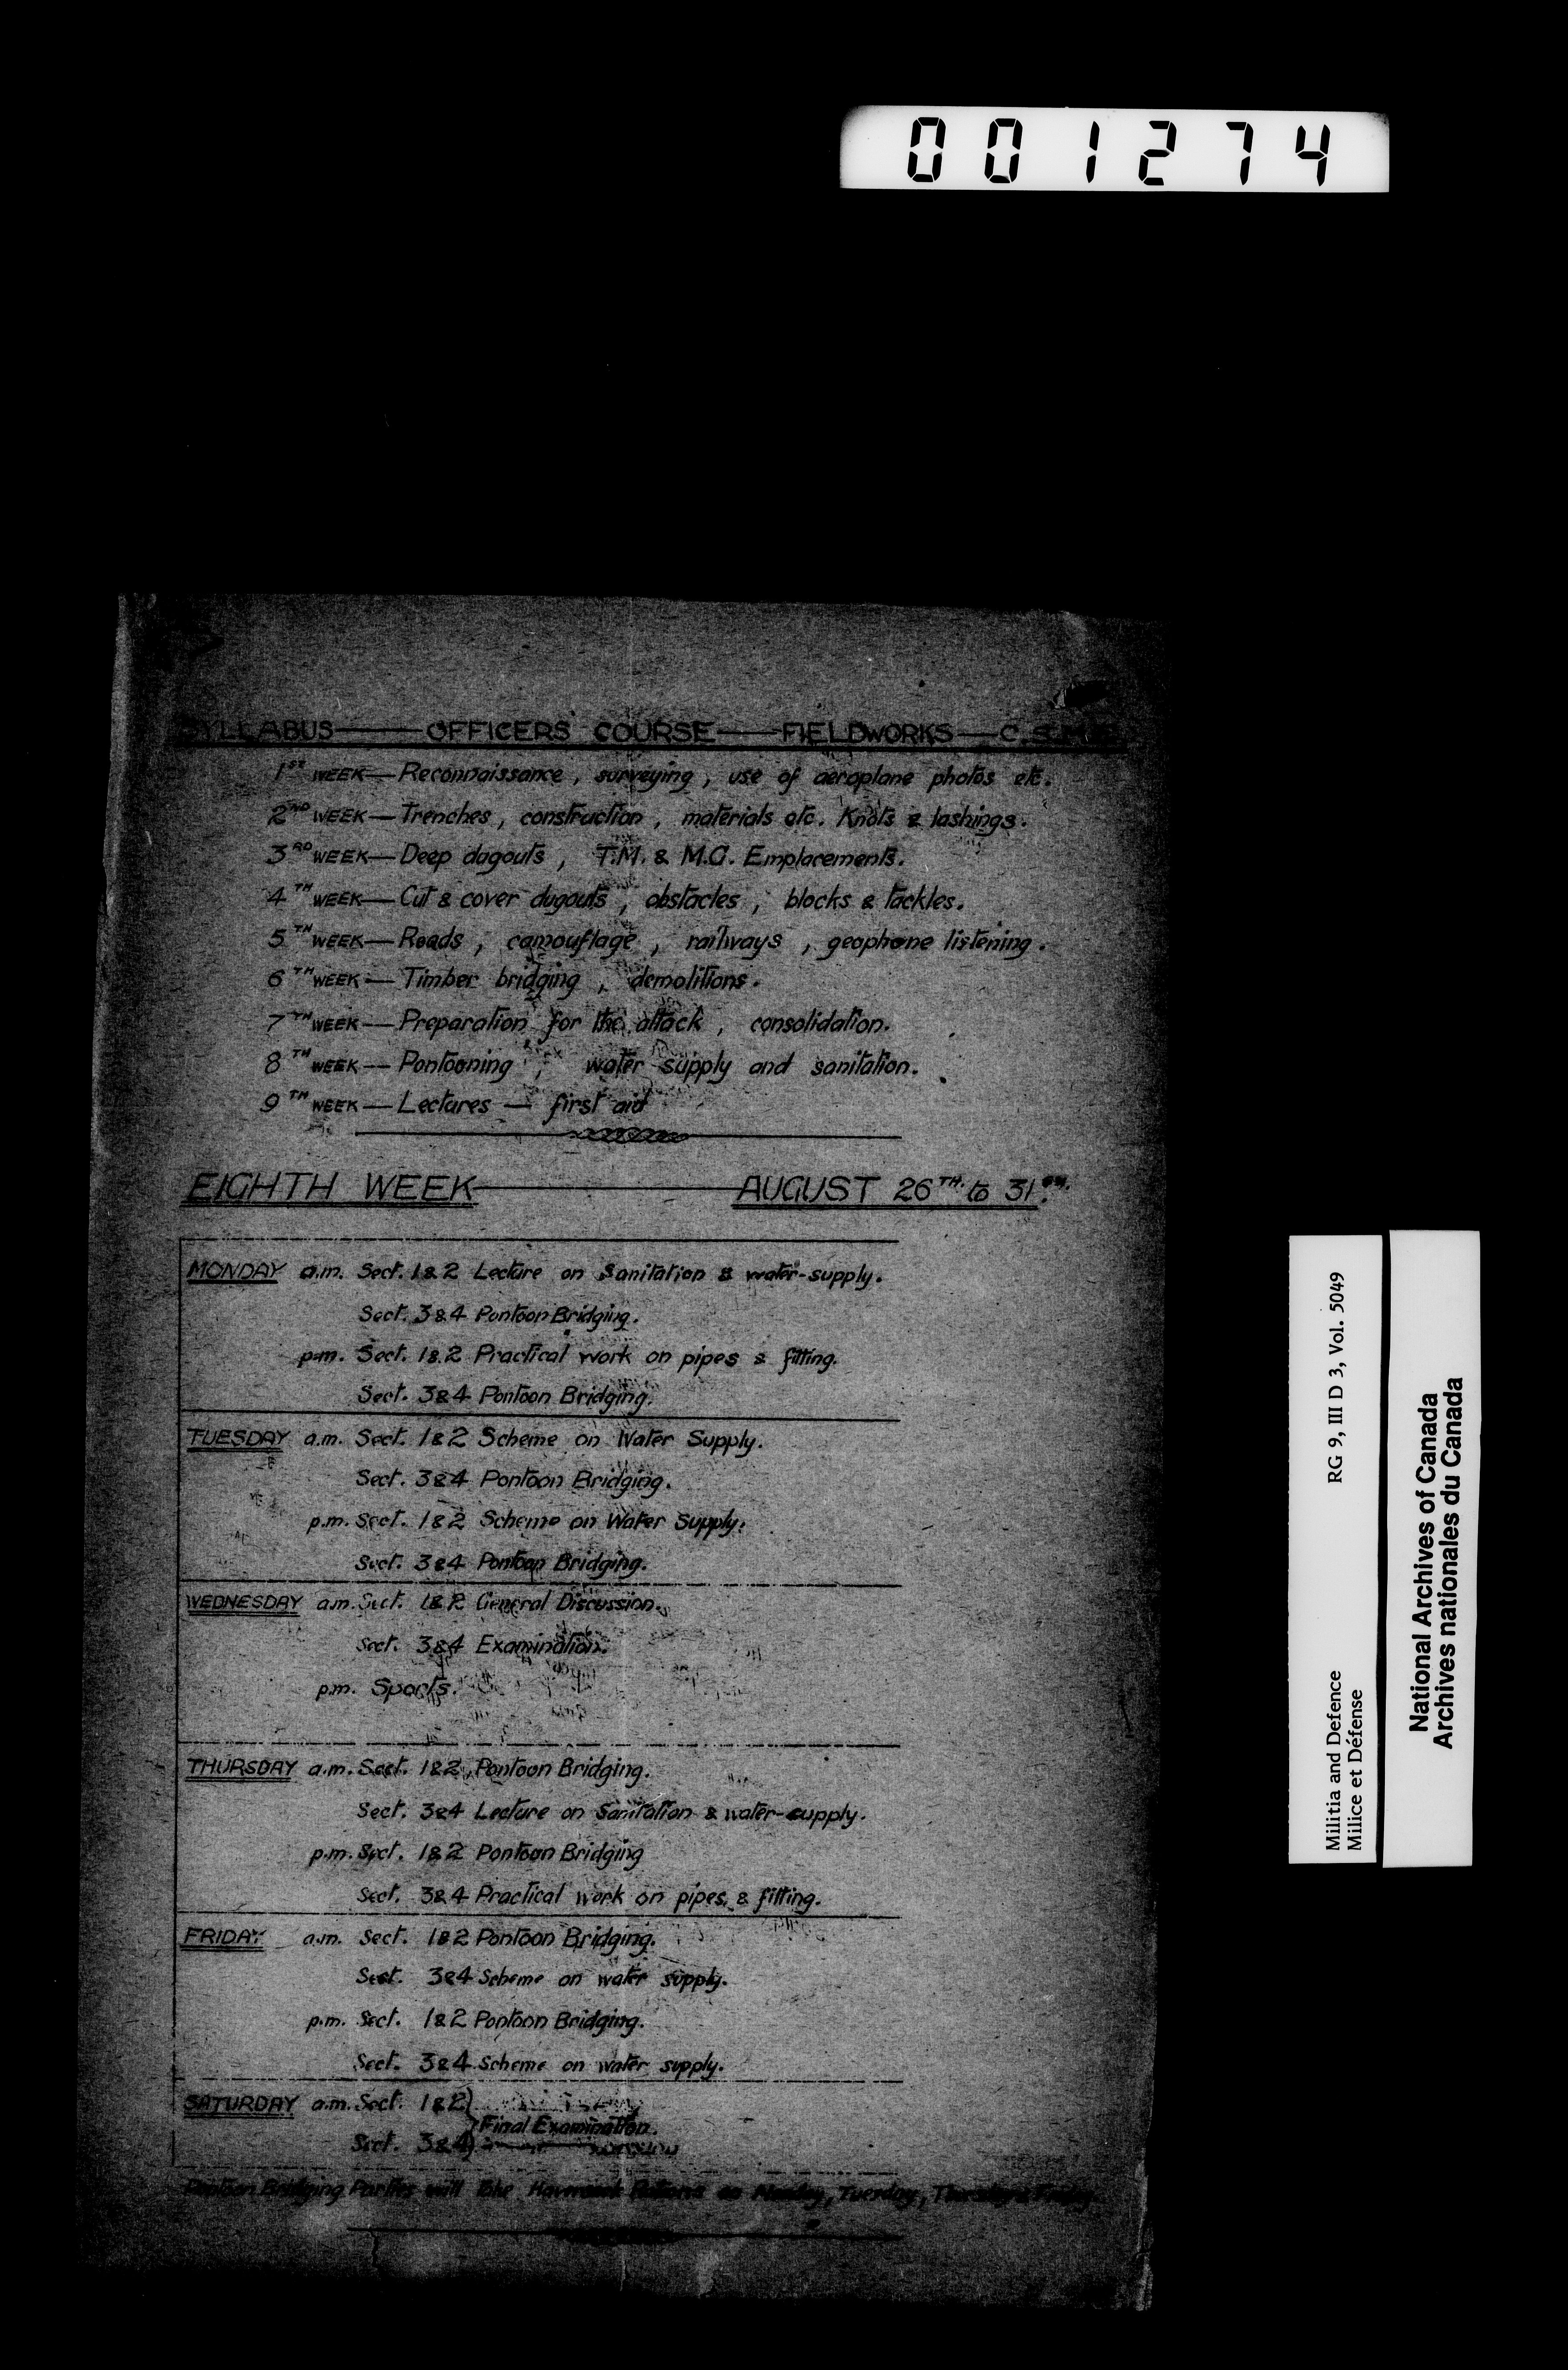 001274
SYLLABUS — OFFICERS COURSE — FIELDWORKS — C.S.M.E.
1ST WEEK — Reconnaissance, surveying, use of aeroplane photos etc.
2ND WEEK — Trenches, construction, materials etc. Knots & lashings.
3RD WEEK — Deep dugouts, T.M. & M.G. Emplacements.
4TH WEEK — Cut & cover dugouts, obstacles, blocks & tackles.
5TH WEEK — Roads, camouflage, railways, geophone listening.
6TH WEEK — Timber bridging, demolitions.
7TH WEEK — Preparation for the attack, consolidation.
8TH WEEK — Pontooning, water supply and sanitation.
9TH WEEK — Lectures — first aid
EIGHTH WEEK — AUGUST 26TH. to 31ST.
MONDAY a.m. Sect. 1&2 Lecture on Sanitation & water-supply.
Sect. 3&4 Pontoon Bridging.
p.m. Sect. 1&2 Practical work on pipes & fitting.
Sect. 3&4 Pontoon Bridging.
TUESDAY a.m. Sect. 1&2 Scheme on Water Supply.
Sect. 3&4 Pontoon Bridging.
p.m. Sect. 1&2 Scheme on Water Supply.
Sect. 3&4 Pontoon Bridging.
WEDNESDAY a.m. Sect. 1&2 General Discussion.
Sect. 3&4 Examination.
p.m. Sports.
THURSDAY a.m. Sect. 1&2 Pontoon Bridging.
Sect. 3&4 Lecture on Sanitation & water-supply.
p.m. Sect. 1&2 Pontoon Bridging
Sect. 3&4 Practical work on pipes & fitting.
FRIDAY a.m. Sect. 1&2 Pontoon Bridging.
Sect. 3&4 Scheme on water supply.
p.m. Sect. 1&2 Pontoon Bridging.
Sect. 3&4 Scheme on water supply.
SATURDAY a.m. Sect. 1&2
Final Examination.
Sect. 3&4
Pontoon Bridging Parties will take Haversack Rations on Monday, Tuesday, Thursday & Friday.
Militia and Defence RG 9, III D 3, Vol. 5049
Milice et Défense
National Archives of Canada
Archives nationales du Canada